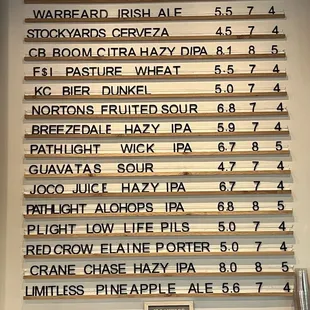 WARBEARD IRISH ALE 5.5 7 4
STOCKYARDS CERVEZA 4.5 7 4
CB BOOM CITRA HAZY DIPA 8.1 8 5
F$I PASTURE WHEAT 5.5 7 4
KC BIER DUNKEL 5.0 7 4
NORTONS FRUITED SOUR 6.8 7 4
BREEZEDALE HAZY IPA 5.9 7 4
PATHLIGHT WICK IPA 6.7 8 5
GUAVATAS SOUR 4.7 7 4
JOCO JUICE HAZY IPA 6.7 7 4
PATHLIGHT ALOHOPS IPA 6.8 8 5
PLIGHT LOW LIFE PILS 5.0 7 4
RED CROW ELAINE PORTER 5.0 7 4
CRANE CHASE HAZY IPA 8.0 8 5
LIMITLESS PINEAPPLE ALE 5.6 7 4